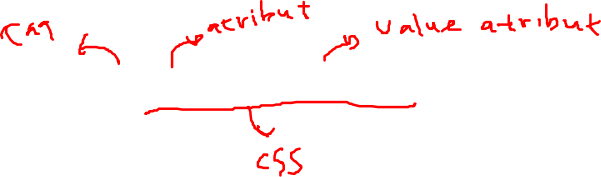 Tag
atribut
value atribut
CSS